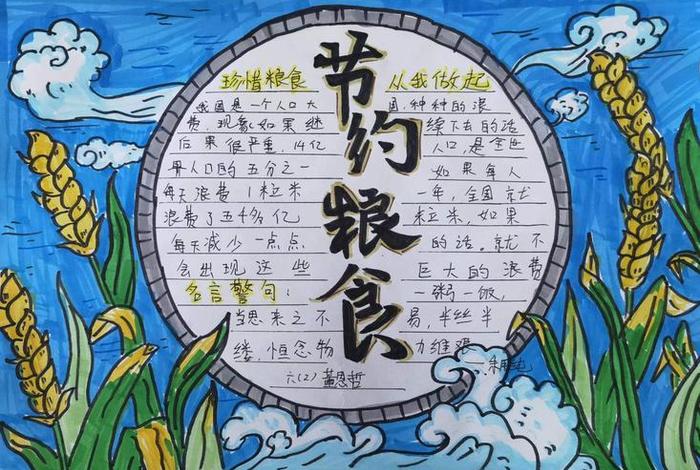 节约粮食
珍惜粮食 从我做起
我国是一个人口大 国,种种的浪
费,现象如果继 续下去的话
后果很严重,14亿 人口,是全世
界人口的五分之一 如果每人
每天浪费1粒米 一年,全国就
浪费了五千多亿 粒米,如果
每天减少一点点 的话。就不
会出现这些 巨大的浪费
名言警句: 一粥一饭,
当思来之不 易,半丝半
缕,恒念物 力维艰
六(2) 董恩哲